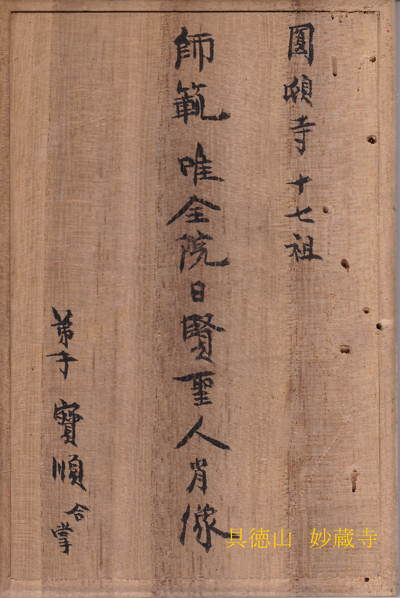 圓頋寺十七祖
師範 唯全院日賢聖人肖像
弟子 寶順 合掌
具徳山 妙蔵寺